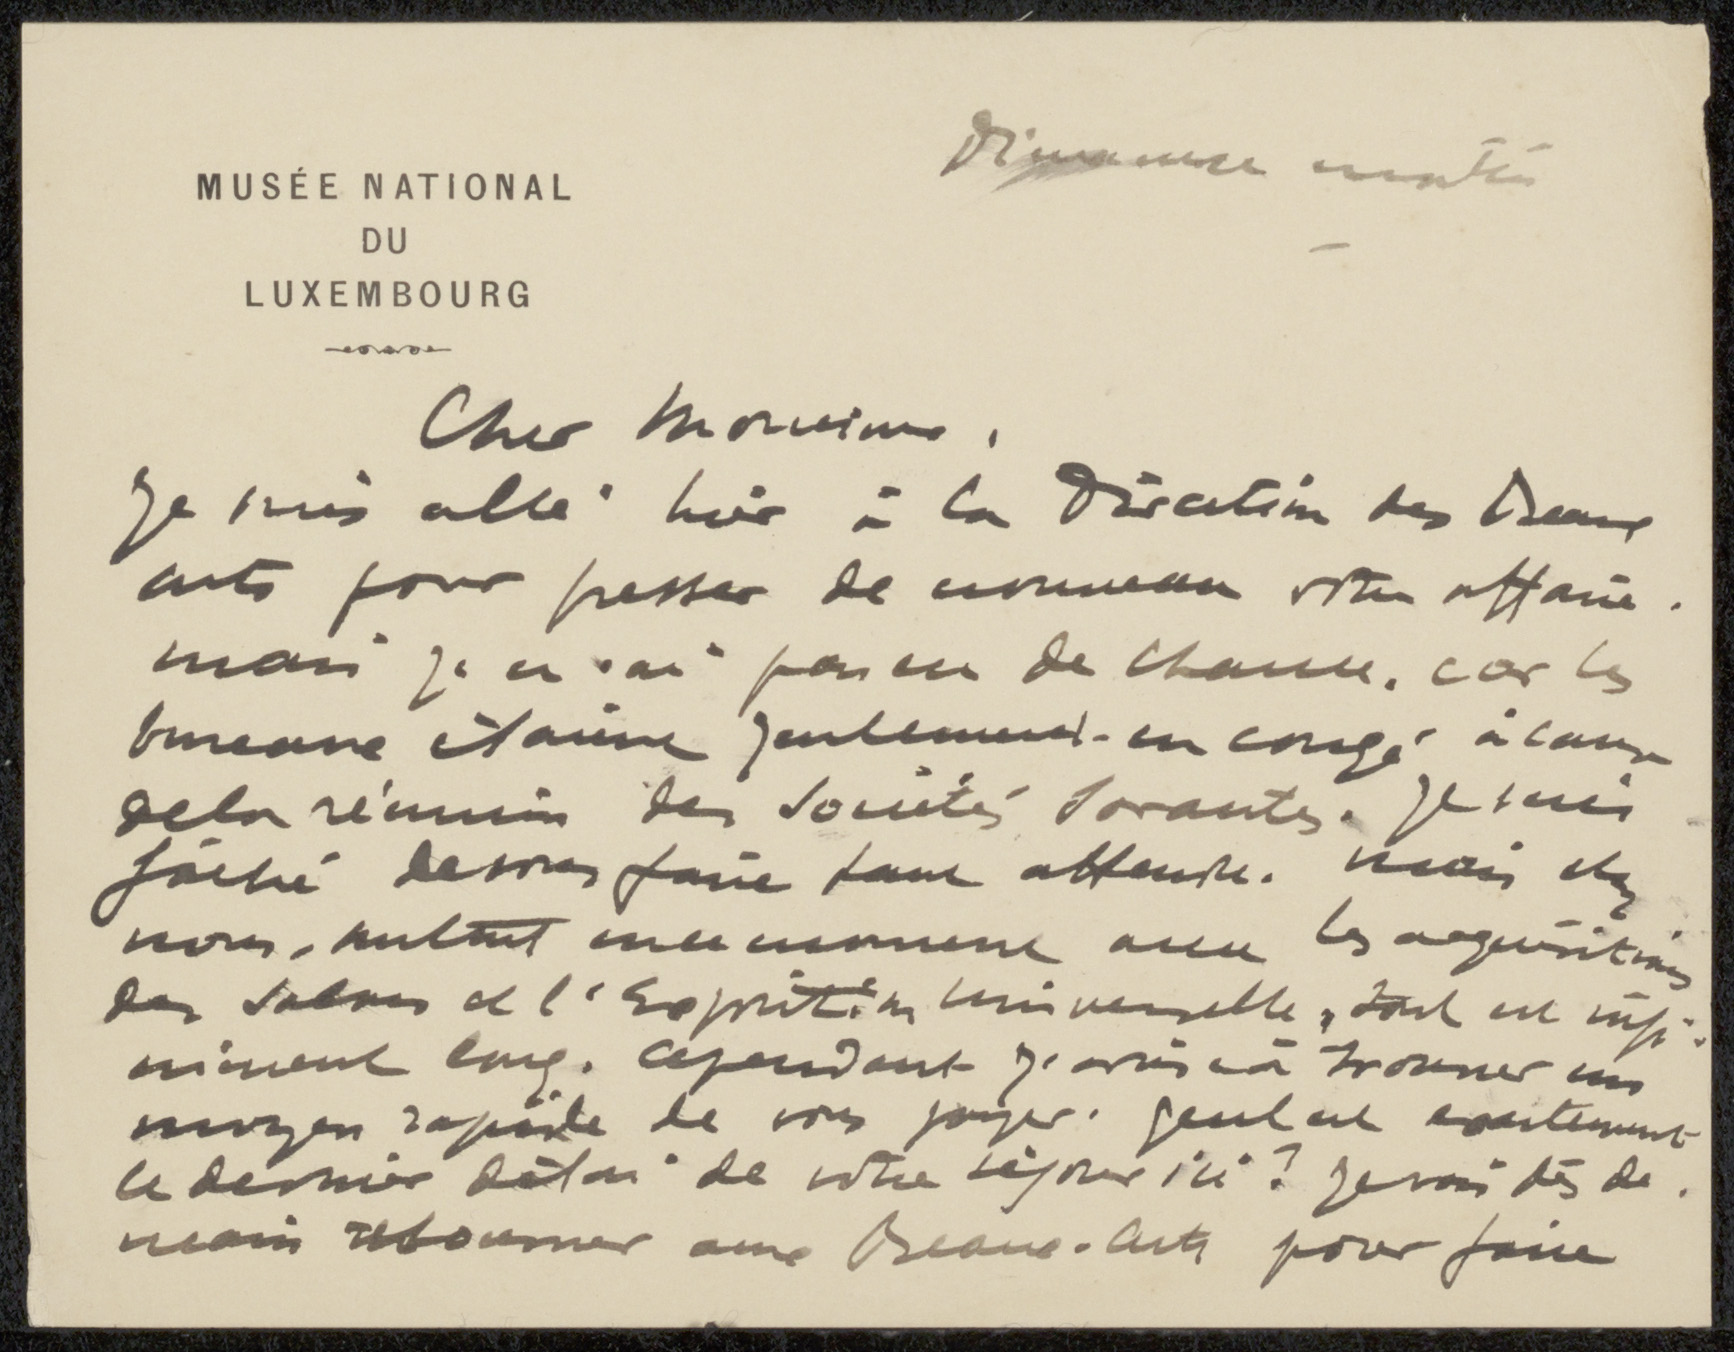 Dimanche matin
MUSÉE NATIONAL
DU
LUXEMBOURG
Cher Monsieur,
Je suis allé hier à la Direction des Beaux
arts pour presser de nouveau votre affaire.
mais je n'ai pas eu de chance, car les
bureaux étaient justement en congé à cause
de la réunion des Sociétés Savantes. Je suis
fâché de vous faire tant attendre. Mais chez
nous, surtout en ce moment avec les acquisitions
des Salons et l'Exposition Universelle, tout est infi-
niment long. Cependant j'arriverai à trouver un
moyen rapide de vous payer. Quel est exactement
le dernier délai de votre séjour ici? Je vais dès de-
main retourner aux Beaux-Arts pour faire